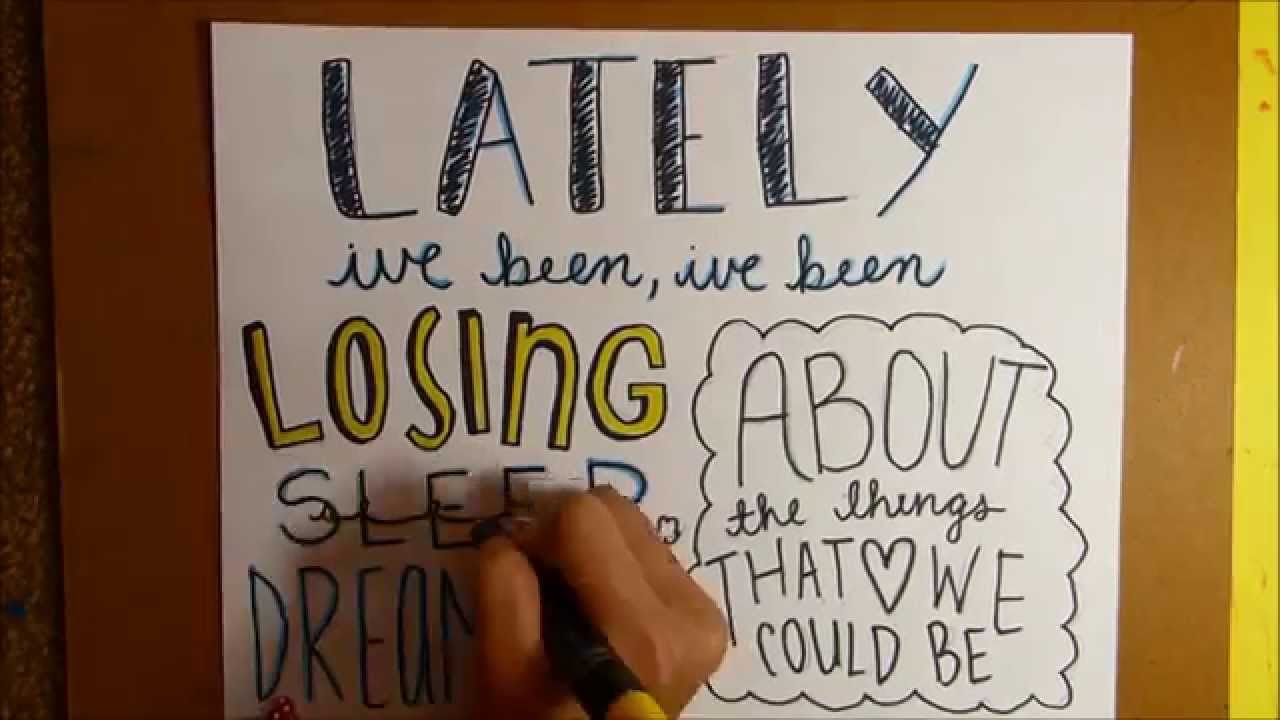 LATELY
ive been, ive been
LOSInG
SLEEP
DREAM
ABOUT
the things
THAT WE
COULD BE